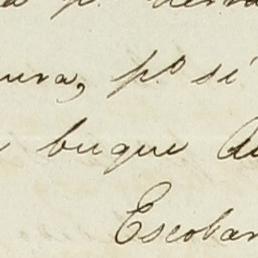 p.
ura, p.º si
buque
Escobar